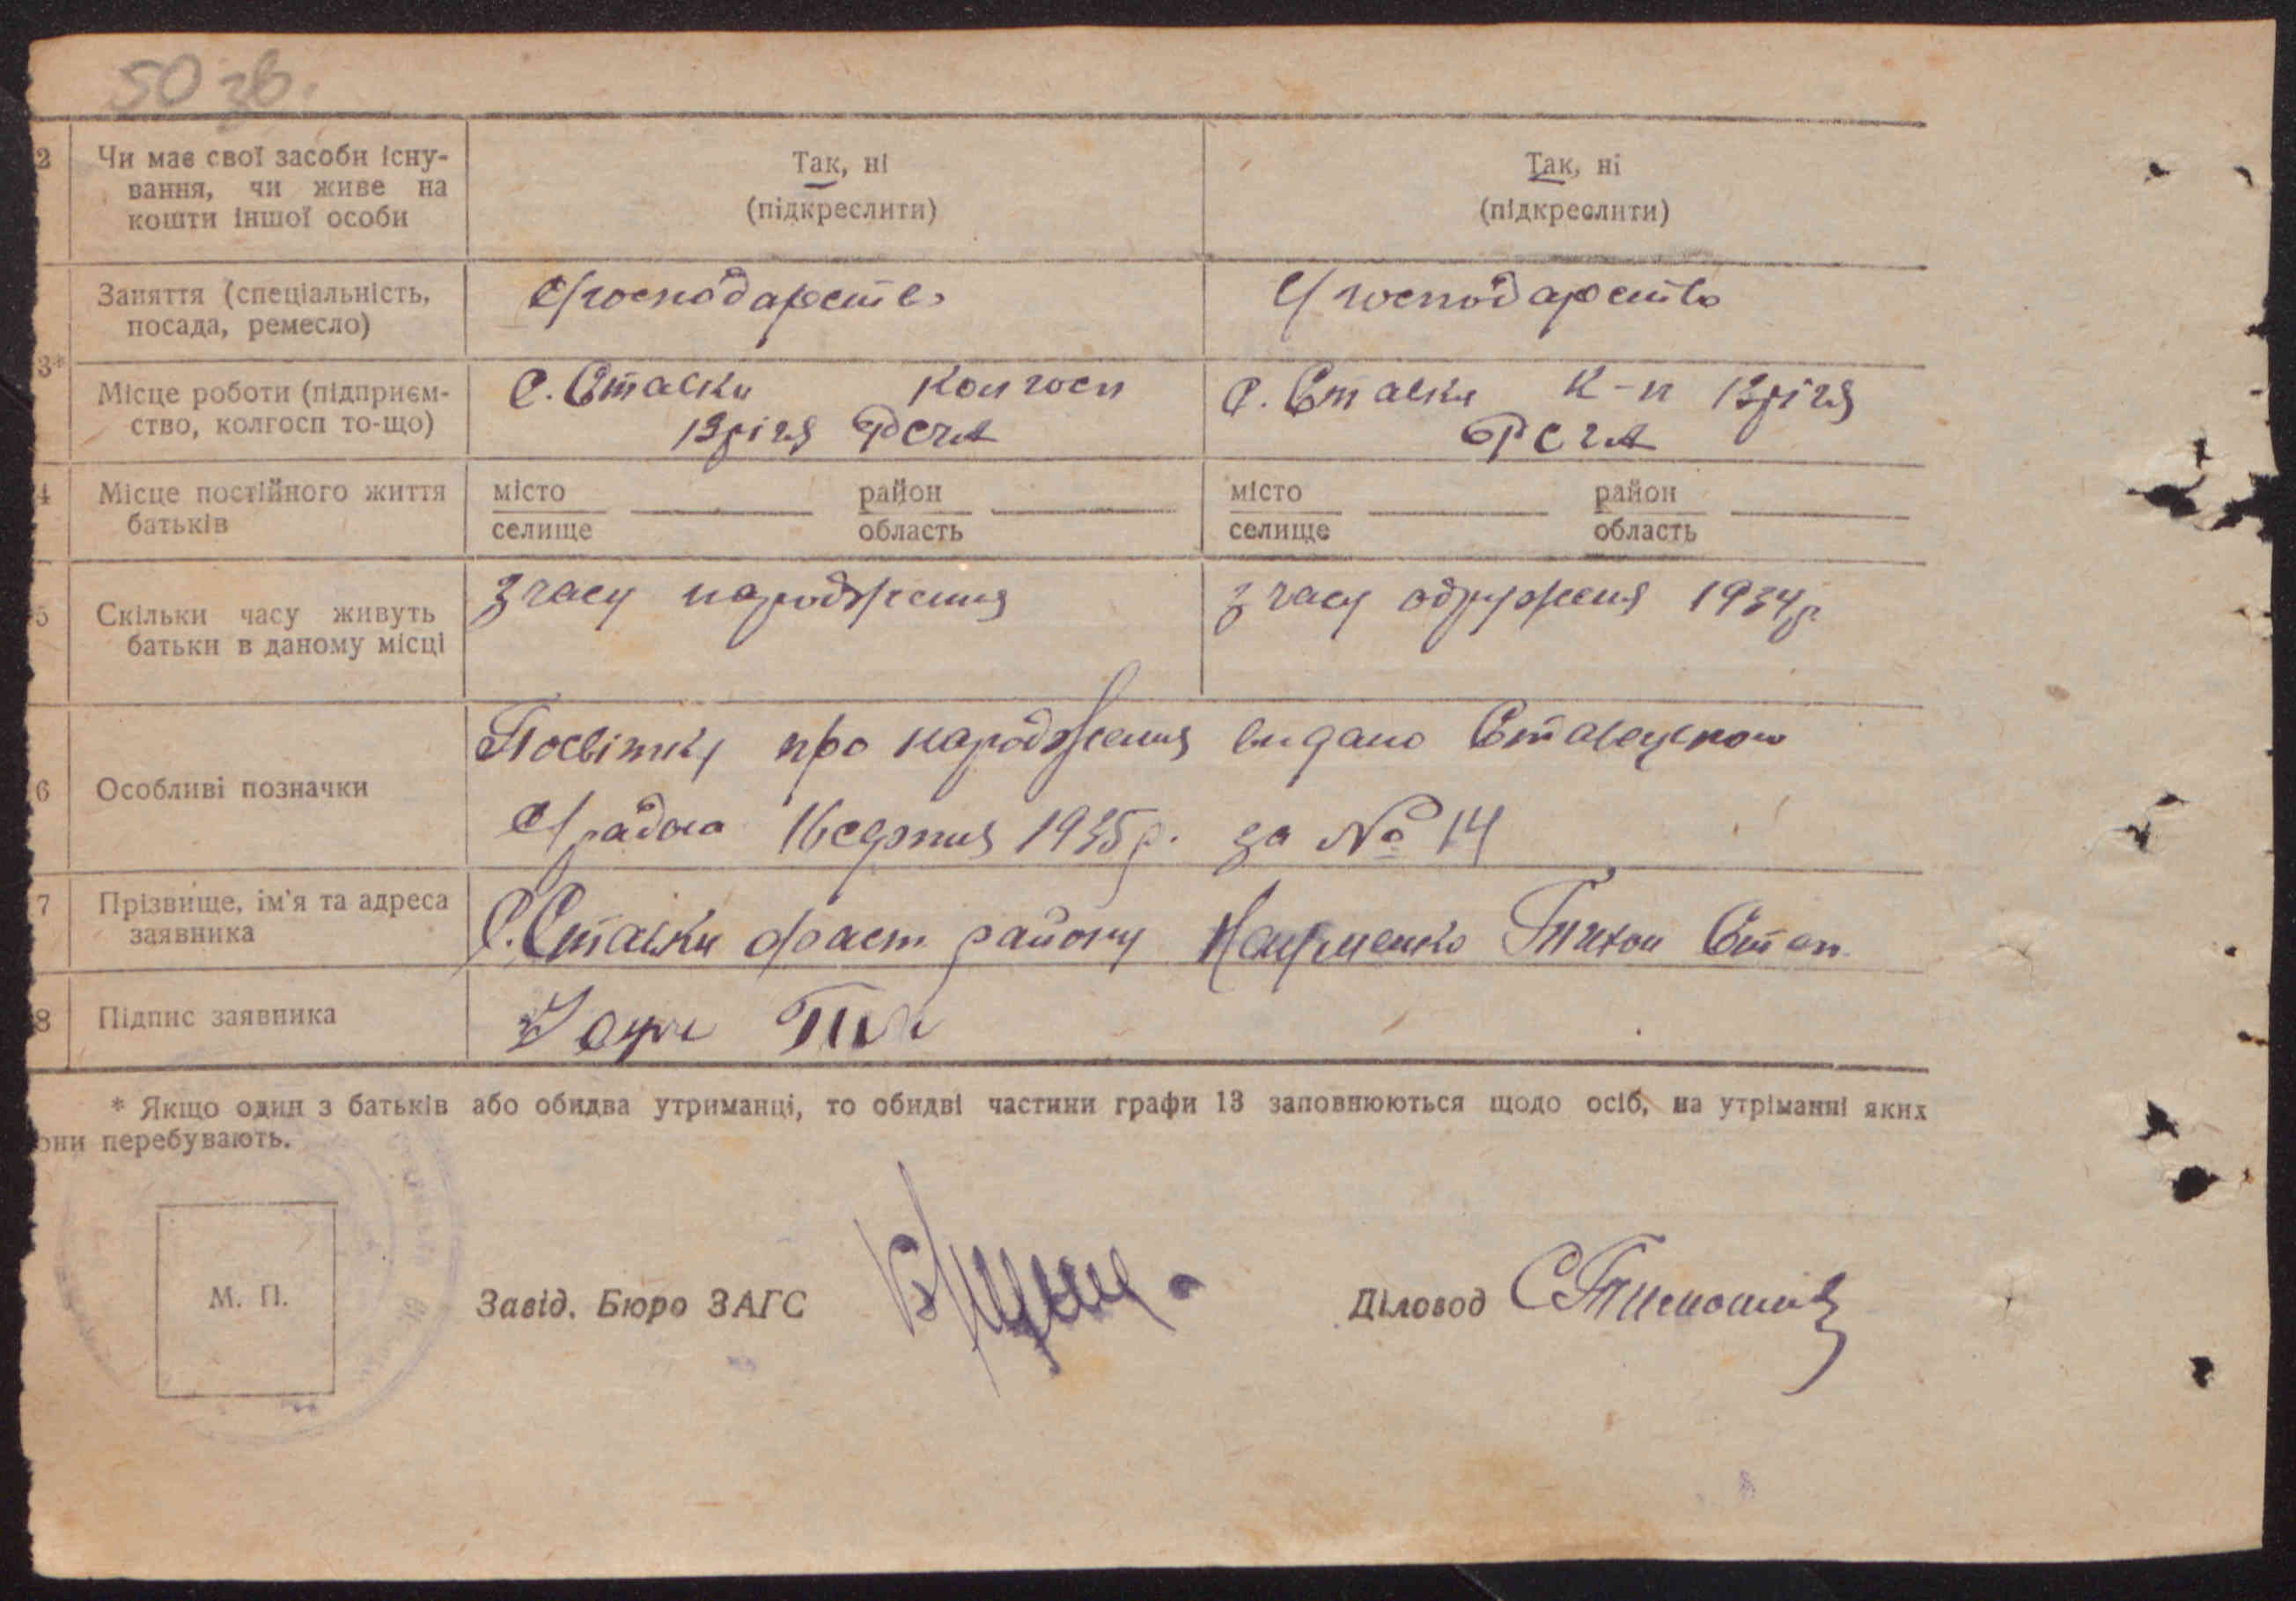 50 зв.
2 Чи має свої засоби існу-
вання, чи живе на
кошти іншої особи
Так, ні
(підкреслити)
Так, ні
(підкреслити)
Заняття (спеціальність,
посада, ремесло)
с/господарство
с/господарство
3*
Місце роботи (підприєм-
ство, колгосп то-що)
С. Ставки колгосп
13 річя РСЧА
С. Ставки к-п 13 річя
РСЧА
4 Місце постійного життя
батьків
місто район
селище область
місто район
селище область
5 Скільки часу живуть
батьки в даному місці
З часу народження
З часу одруження 1934р
6 Особливі позначки
Посвітку про народження видано Ставецкою
с/радою 16 серпня 1935р. за № 14
7 Прізвище, ім'я та адреса
заявника
С. Ставки району Науменко Тихон Степ.
8 Підпис заявника
* Якщо один з батьків або обидва утриманці, то обидві частини графи 13 заповнюються щодо осіб, на утріманні яких
они перебувають.
М. П.
Завід. Бюро ЗАГС
Діловод